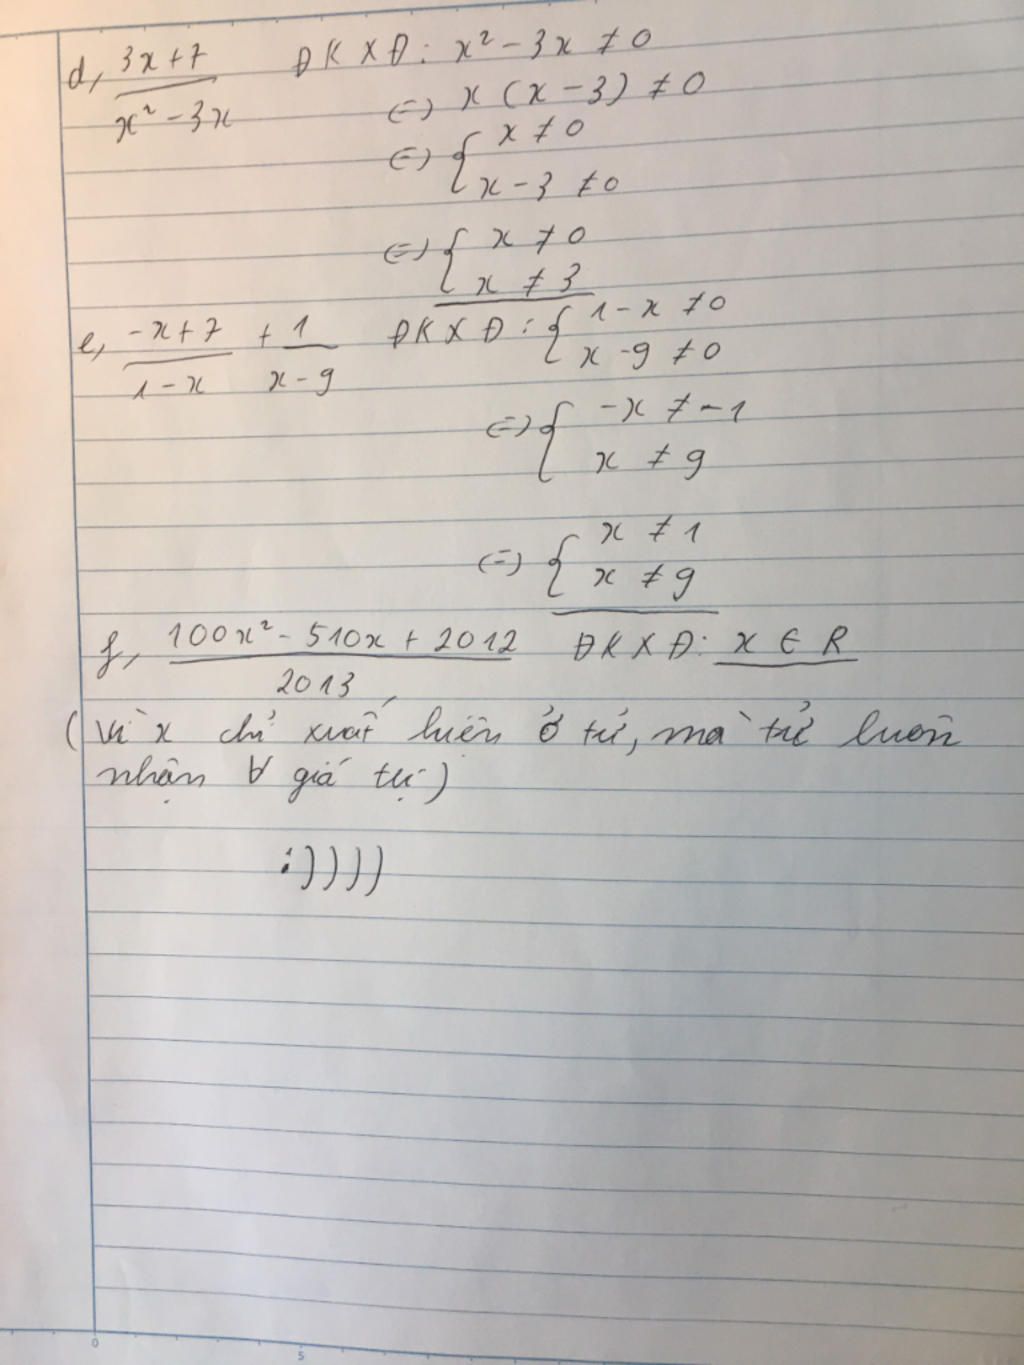 d, (3x+7)/(x² - 3x) ĐKXĐ: x² - 3x ≠ 0
(=) x (x - 3) ≠ 0
(=) { x ≠ 0
x - 3 ≠ 0
(=) { x ≠ 0
x ≠ 3
e, (-x+7)/(1-x) + 1/(x-9) ĐKXĐ: { 1-x ≠ 0
x-9 ≠ 0
(=) { -x ≠ -1
x ≠ 9
(=) { x ≠ 1
x ≠ 9
f, (100x² - 510x + 2012)/2013 ĐKXĐ: x ∈ R
(Vì x chỉ xuất hiện ở tử, mà tử luôn
nhận ∀ giá trị)
:))))
0 5